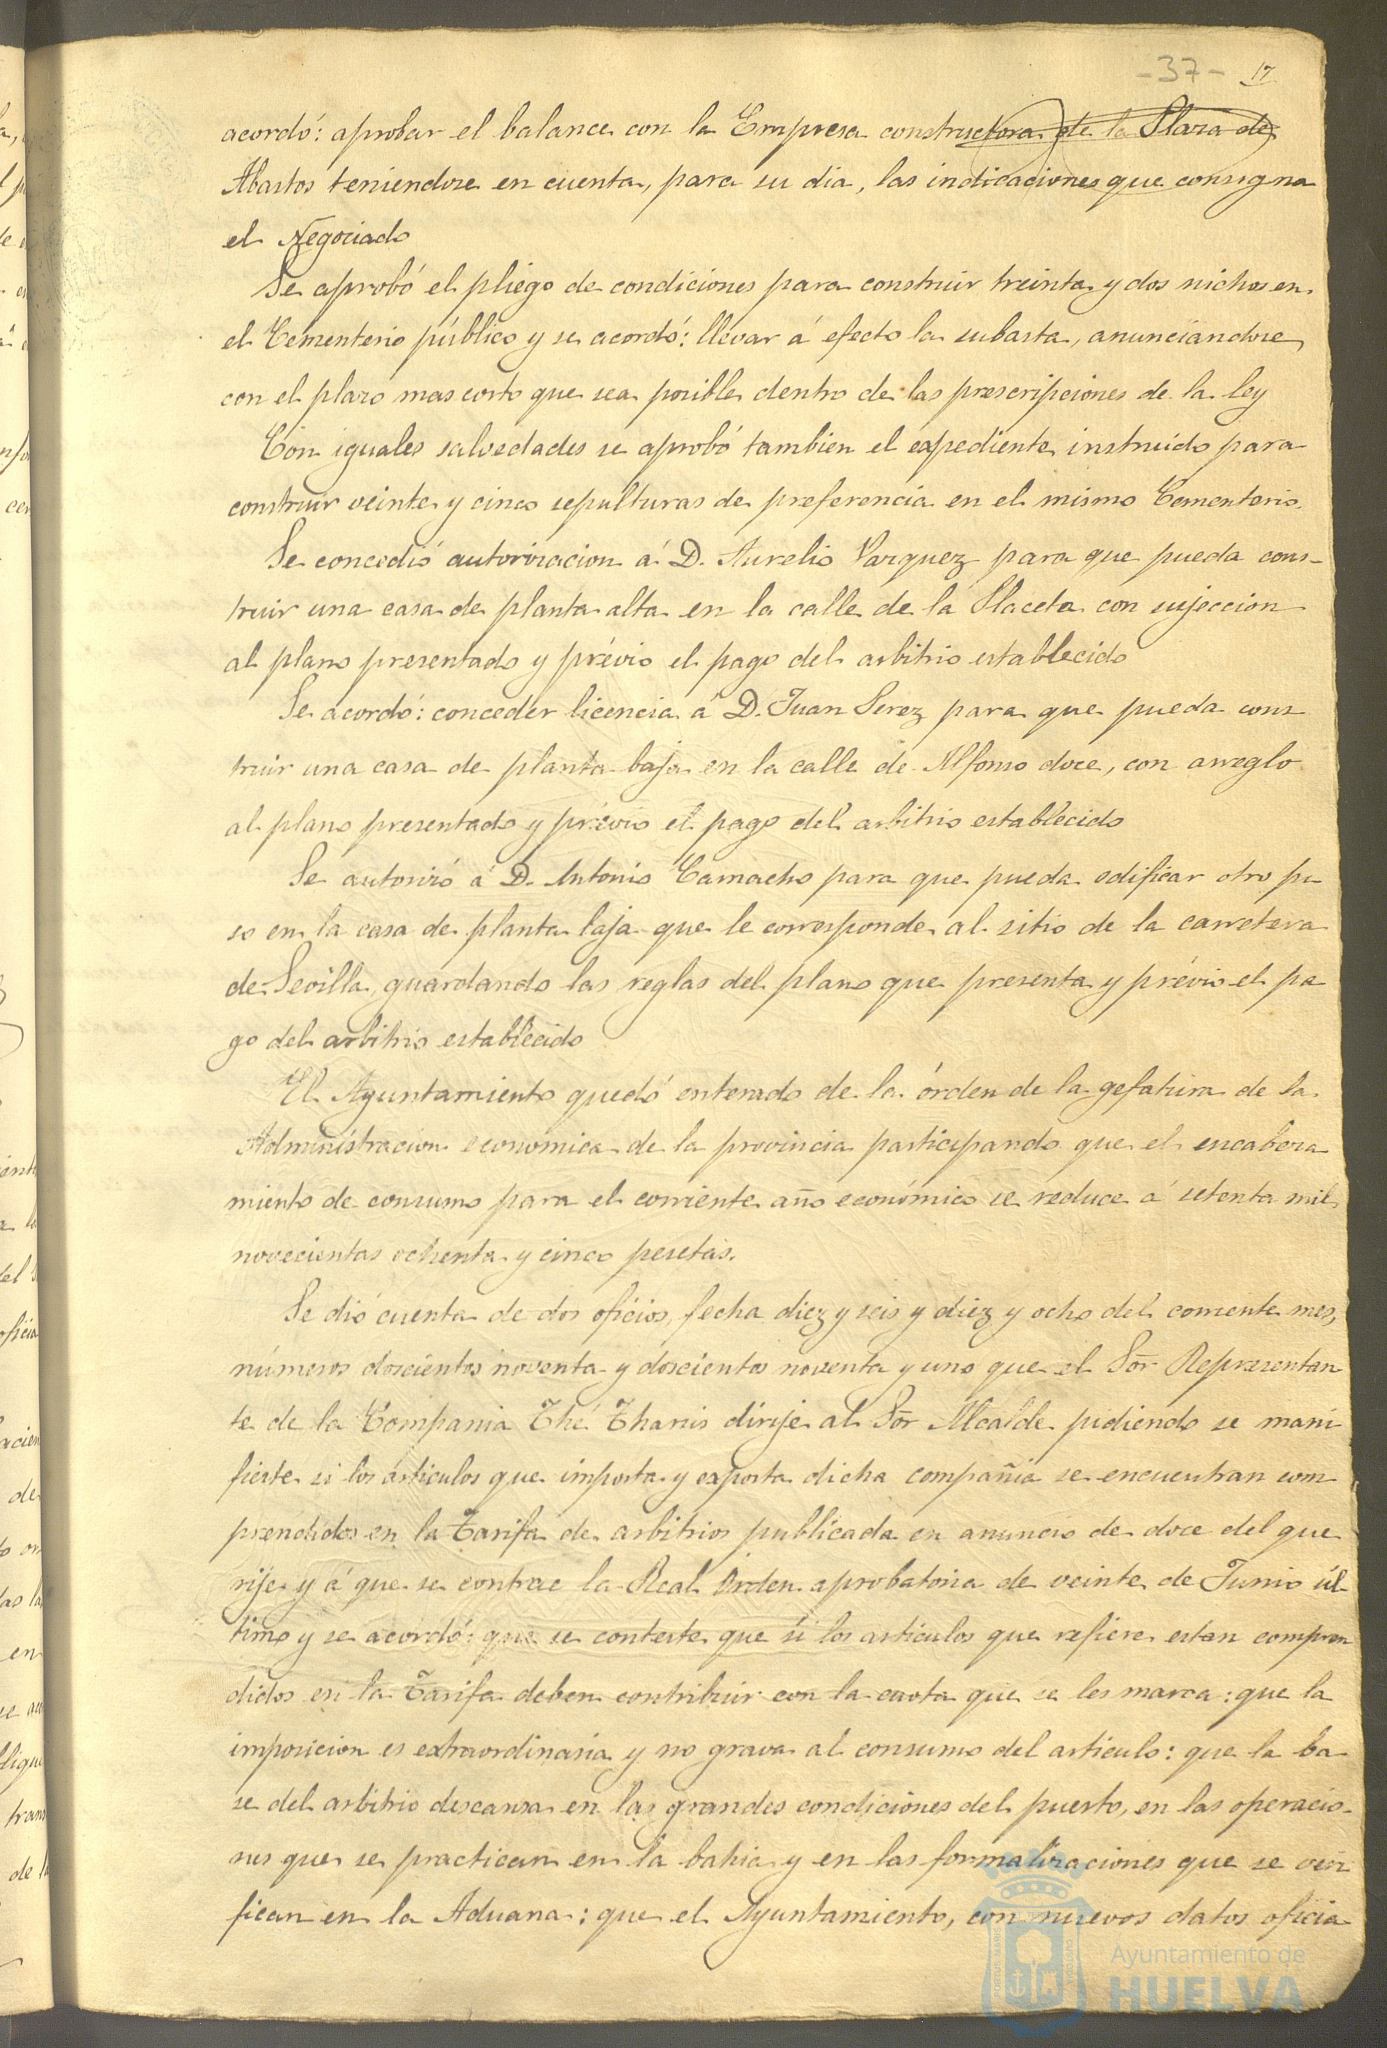 -37- 17
acordó: aprobar el balance con la Empresa constructora de la Plaza de
Abastos teniendose en cuenta, para su dia, las indicaciones que consigna
el Negociado
Se aprobó el pliego de condiciones para construir treinta y dos nichos en
el Cementerio público y se acordó: llevar á efecto la subasta, anunciandose
con el plazo mas corto que sea posible dentro de las prescripciones de la ley
Con iguales salvedades se aprobó tambien el expediente instruido para
construir veinte y cinco sepulturas de preferencia en el mismo Cementerio.
Se concedió autorizacion á D. Aurelio Vazquez para que pueda cons-
truir una casa de planta alta en la calle de la Placeta con sujeccion
al plano presentado y prévio el pago del arbitrio establecido
Se acordó: conceder licencia á D. Juan Perez para que pueda cons
truir una casa de planta baja en la calle de Alfonso doce, con arreglo
al plano presentado y prévio el pago del arbitrio establecido
Se autorizó á D. Antonio Camacho para que pueda edificar otro pi
so en la casa de planta baja que le corresponde al sitio de la carretera
de Sevilla, guardando las reglas del plano que presenta y prévio el pa
go del arbitrio establecido
El Ayuntamiento quedó enterado de la órden de la gefatura de la
Administracion económica de la provincia participando que el encabeza
miento de consumo para el corriente año económico se reduce á setenta mil
novecientas ochenta y cinco pesetas.
Se dió cuenta de dos oficios, fecha diez y seis y diez y ocho del corriente mes,
números doscientos noventa y doscientos noventa y uno que el Sor Representan
te de la Compania Thé Tharsis dirije al Sor Alcalde pidiendo se mani
fieste si los artículos que importa y exporta dicha compañia se encuentran com
prendidos en la Tarifa de arbitrios publicada en anuncio de doce del que
rije y á que se contrae la Real Orden aprobatoria de veinte de Junio úl
timo y se acordó: que se conteste que si los artículos que refiere estan compren
didos en la Tarifa deben contribuir con la cuota que se les marca: que la
imposicion es extraordinaria y no grava al consumo del artículo: que la ba
se del arbitrio descansa en las grandes condiciones del puerto, en las operacio-
nes que se practican en la bahia y en las formalizaciones que se veri
fican en la Aduana: que el Ayuntamiento, con nuevos datos oficia
Ayuntamiento de
HUELVA